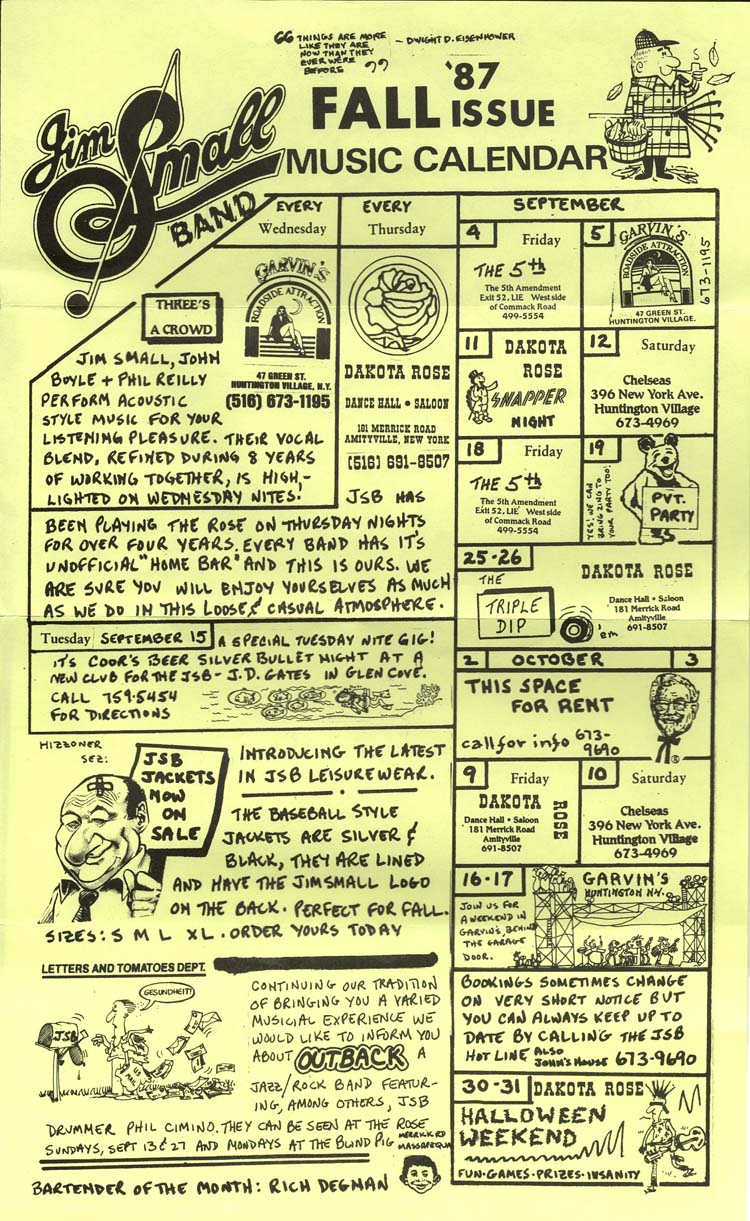 “ THINGS ARE MORE
LIKE THEY ARE
NOW THAN THEY
EVER WERE
BEFORE ”
- DWIGHT D. EISENHOWER
'87
FALL ISSUE
MUSIC CALENDAR
Jim
Small
BAND
EVERY
Wednesday
GARVIN'S
ROADSIDE ATTRACTION
47 GREEN ST.
HUNTINGTON VILLAGE, N.Y.
(516) 673-1195
THREE'S
A CROWD
JIM SMALL, JOHN
BOYLE + PHIL REILLY
PERFORM ACOUSTIC
STYLE MUSIC FOR YOUR
LISTENING PLEASURE. THEIR VOCAL
BLEND, REFINED DURING 8 YEARS
OF WORKING TOGETHER, IS HIGH-
LIGHTED ON WEDNESDAY NITES.
EVERY
Thursday
DAKOTA ROSE
DANCE HALL • SALOON
181 MERRICK ROAD
AMITYVILLE, NEW YORK
(516) 691-8507
JSB HAS
BEEN PLAYING THE ROSE ON THURSDAY NIGHTS
FOR OVER FOUR YEARS. EVERY BAND HAS IT'S
UNOFFICIAL "HOME BAR" AND THIS IS OURS. WE
ARE SURE YOU WILL ENJOY YOURSELVES AS MUCH
AS WE DO IN THIS LOOSE & CASUAL ATMOSPHERE.
Tuesday SEPTEMBER 15
A SPECIAL TUESDAY NITE GIG!
IT'S COOR'S BEER SILVER BULLET NIGHT AT A
NEW CLUB FOR THE JSB - J.D. GATES IN GLEN COVE.
CALL 759-5454
FOR DIRECTIONS
HIZZONER
SEZ:
JSB
JACKETS
NOW
ON
SALE
INTRODUCING THE LATEST
IN JSB LEISUREWEAR.
THE BASEBALL STYLE
JACKETS ARE SILVER &
BLACK, THEY ARE LINED
AND HAVE THE JIMSMALL LOGO
ON THE BACK. PERFECT FOR FALL.
SIZES: S M L XL. ORDER YOURS TODAY
LETTERS AND TOMATOES DEPT.
GESUNDHEIT!
JSB
US MAIL
CONTINUING OUR TRADITION
OF BRINGING YOU A VARIED
MUSICIAL EXPERIENCE WE
WOULD LIKE TO INFORM YOU
ABOUT OUTBACK A
JAZZ/ROCK BAND FEATUR-
ING, AMONG OTHERS, JSB
DRUMMER PHIL CIMINO. THEY CAN BE SEEN AT THE ROSE
SUNDAYS, SEPT 13 & 27 AND MONDAYS AT THE BLIND PIG MERRICK RD
MASSAPEQUA
BARTENDER OF THE MONTH: RICH DEGNAN
SEPTEMBER
4 Friday
THE 5th
The 5th Amendment
Exit 52, LIE West side
of Commack Road
499-5554
5
GARVIN'S
ROADSIDE ATTRACTION
673-1195
47 GREEN ST.
HUNTINGTON VILLAGE.
11 DAKOTA
ROSE
SNAPPER
NIGHT
12 Saturday
Chelseas
396 New York Ave.
Huntington Village
673-4969
18 Friday
THE 5th
The 5th Amendment
Exit 52, LIE West side
of Commack Road
499-5554
19
YES! WE CAN
BRING ZING TO
YOUR PARTY TOO!
PVT.
PARTY
25-26
THE
TRIPLE
DIP
'em
DAKOTA ROSE
Dance Hall • Saloon
181 Merrick Road
Amityville
691-8507
2 OCTOBER 3
THIS SPACE
FOR RENT
call for info 673-
9690
®
9 Friday
DAKOTA
ROSE
Dance Hall • Saloon
181 Merrick Road
Amityville
691-8507
10 Saturday
Chelseas
396 New York Ave.
Huntington Village
673-4969
16-17
GARVIN'S
HUNTINGTON N.Y.
JOIN US FOR
A WEEKEND IN
GARVIN'S, BEHIND
THE GARAGE
DOOR.
BOOKINGS SOMETIMES CHANGE
ON VERY SHORT NOTICE BUT
YOU CAN ALWAYS KEEP UP TO
DATE BY CALLING THE JSB
HOT LINE ALSO
JOHN'S HOUSE 673-9690
30-31 DAKOTA ROSE
HALLOWEEN
WEEKEND
FUN-GAMES-PRIZES-INSANITY